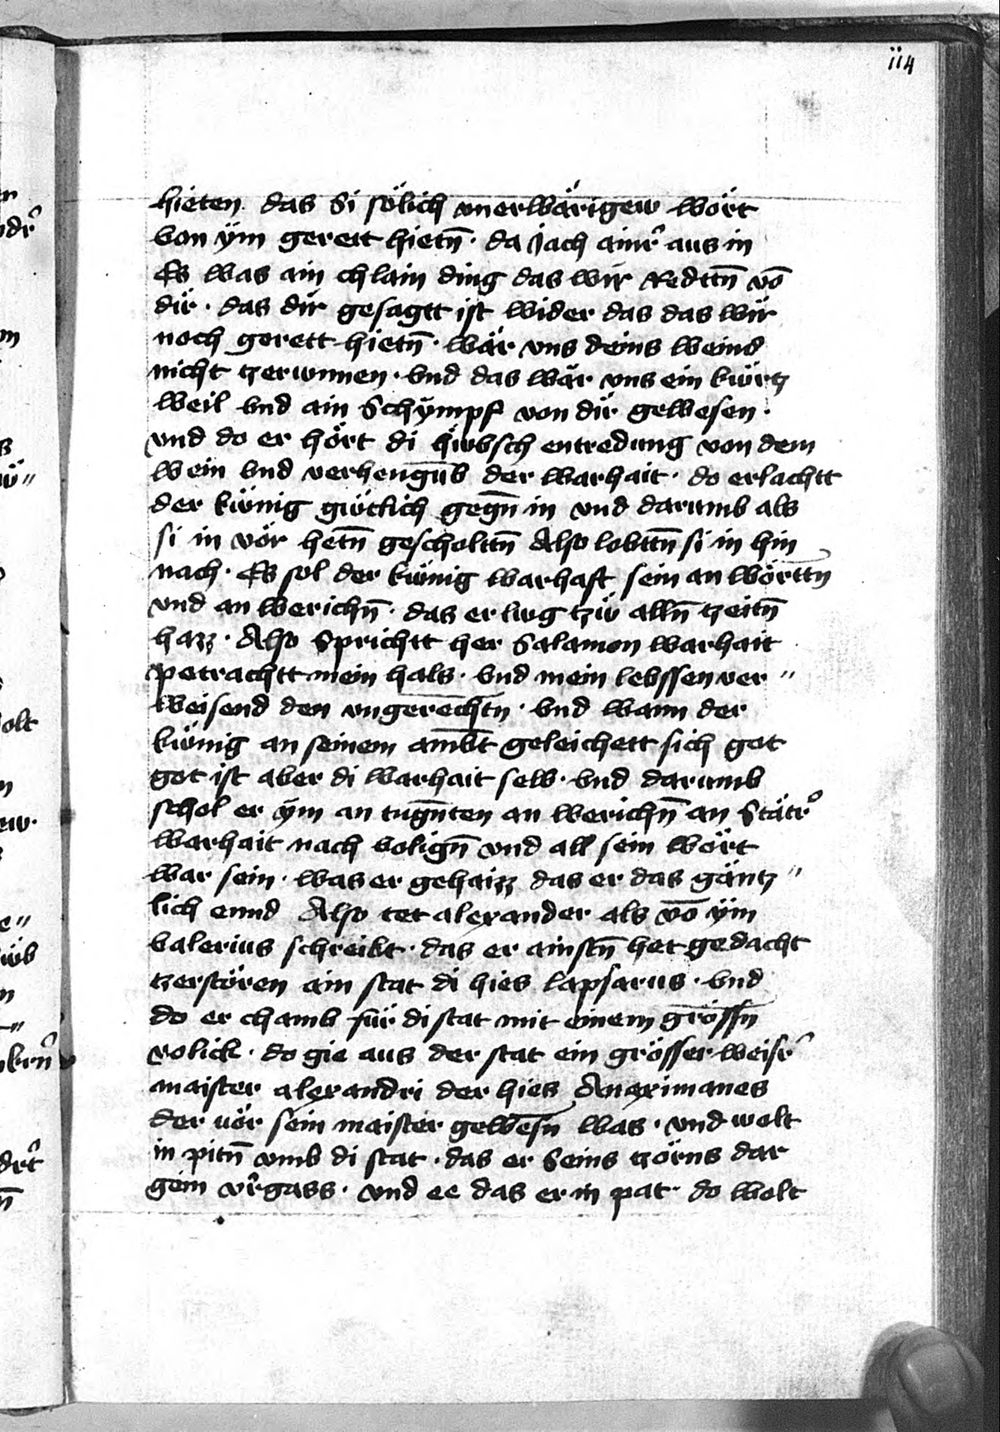 114
hieten. das si sölich unerwärigew wört
von ÿm gereit hietn̄. da jach ainr̉ aus in
Es was ain chlain ding das wir Redttn̄ vō
dir. das dir gesagtt ist wider das das wir
noch gerett hietn̄. wär uns deins weins
nicht tzerunnen. und das wär uns ein kürtz
weil und ain Schÿmpf von dir gewesen.
und do er hört di hübsch entredung von dem
wein und verhengnub der warhait. do erlachtt
der künig gütlich gegn̄ in und darumb als
si in vör hetn̄ gescholttn̄ Also lobttn̄ si in hin
nach. Es sol der künig warhaft sein an wörttn̄
und an werichn̄. das er lug tzü alln̄ tzeitn̄
hazz. Also Sprichtt her Salamon warhait
petrachtt mein hals. und mein lebssen ver〃
weisend den ungerechtn̄. und wann der
künig an seinem ambt geleichett sich got
got ist aber di warhait selb. und darumb
schol er ÿm an tugn̄ten an werichn̄ an Stätr̉
warhait nach volign̄ und all sein wört
war sein. was er gehaizz das er das gäntz〃
lich ennd Also tet alexander als vō ÿm
valerius schreibt. das er ainstn̄ het gedacht
tzerstören ain stat di hies lapsarus. und
do er chamb für di stat mit einem grössn̄
volick. do gie aus der stat ein grösser weisr̉
maister alexandri der hies Anaximanes
der vör sein maister gewesn̄ was. und wolt
in pitn̄ umb di stat. das er Seins tzörns dar
gein vr̉gass. und ee das er in pat. do wolt